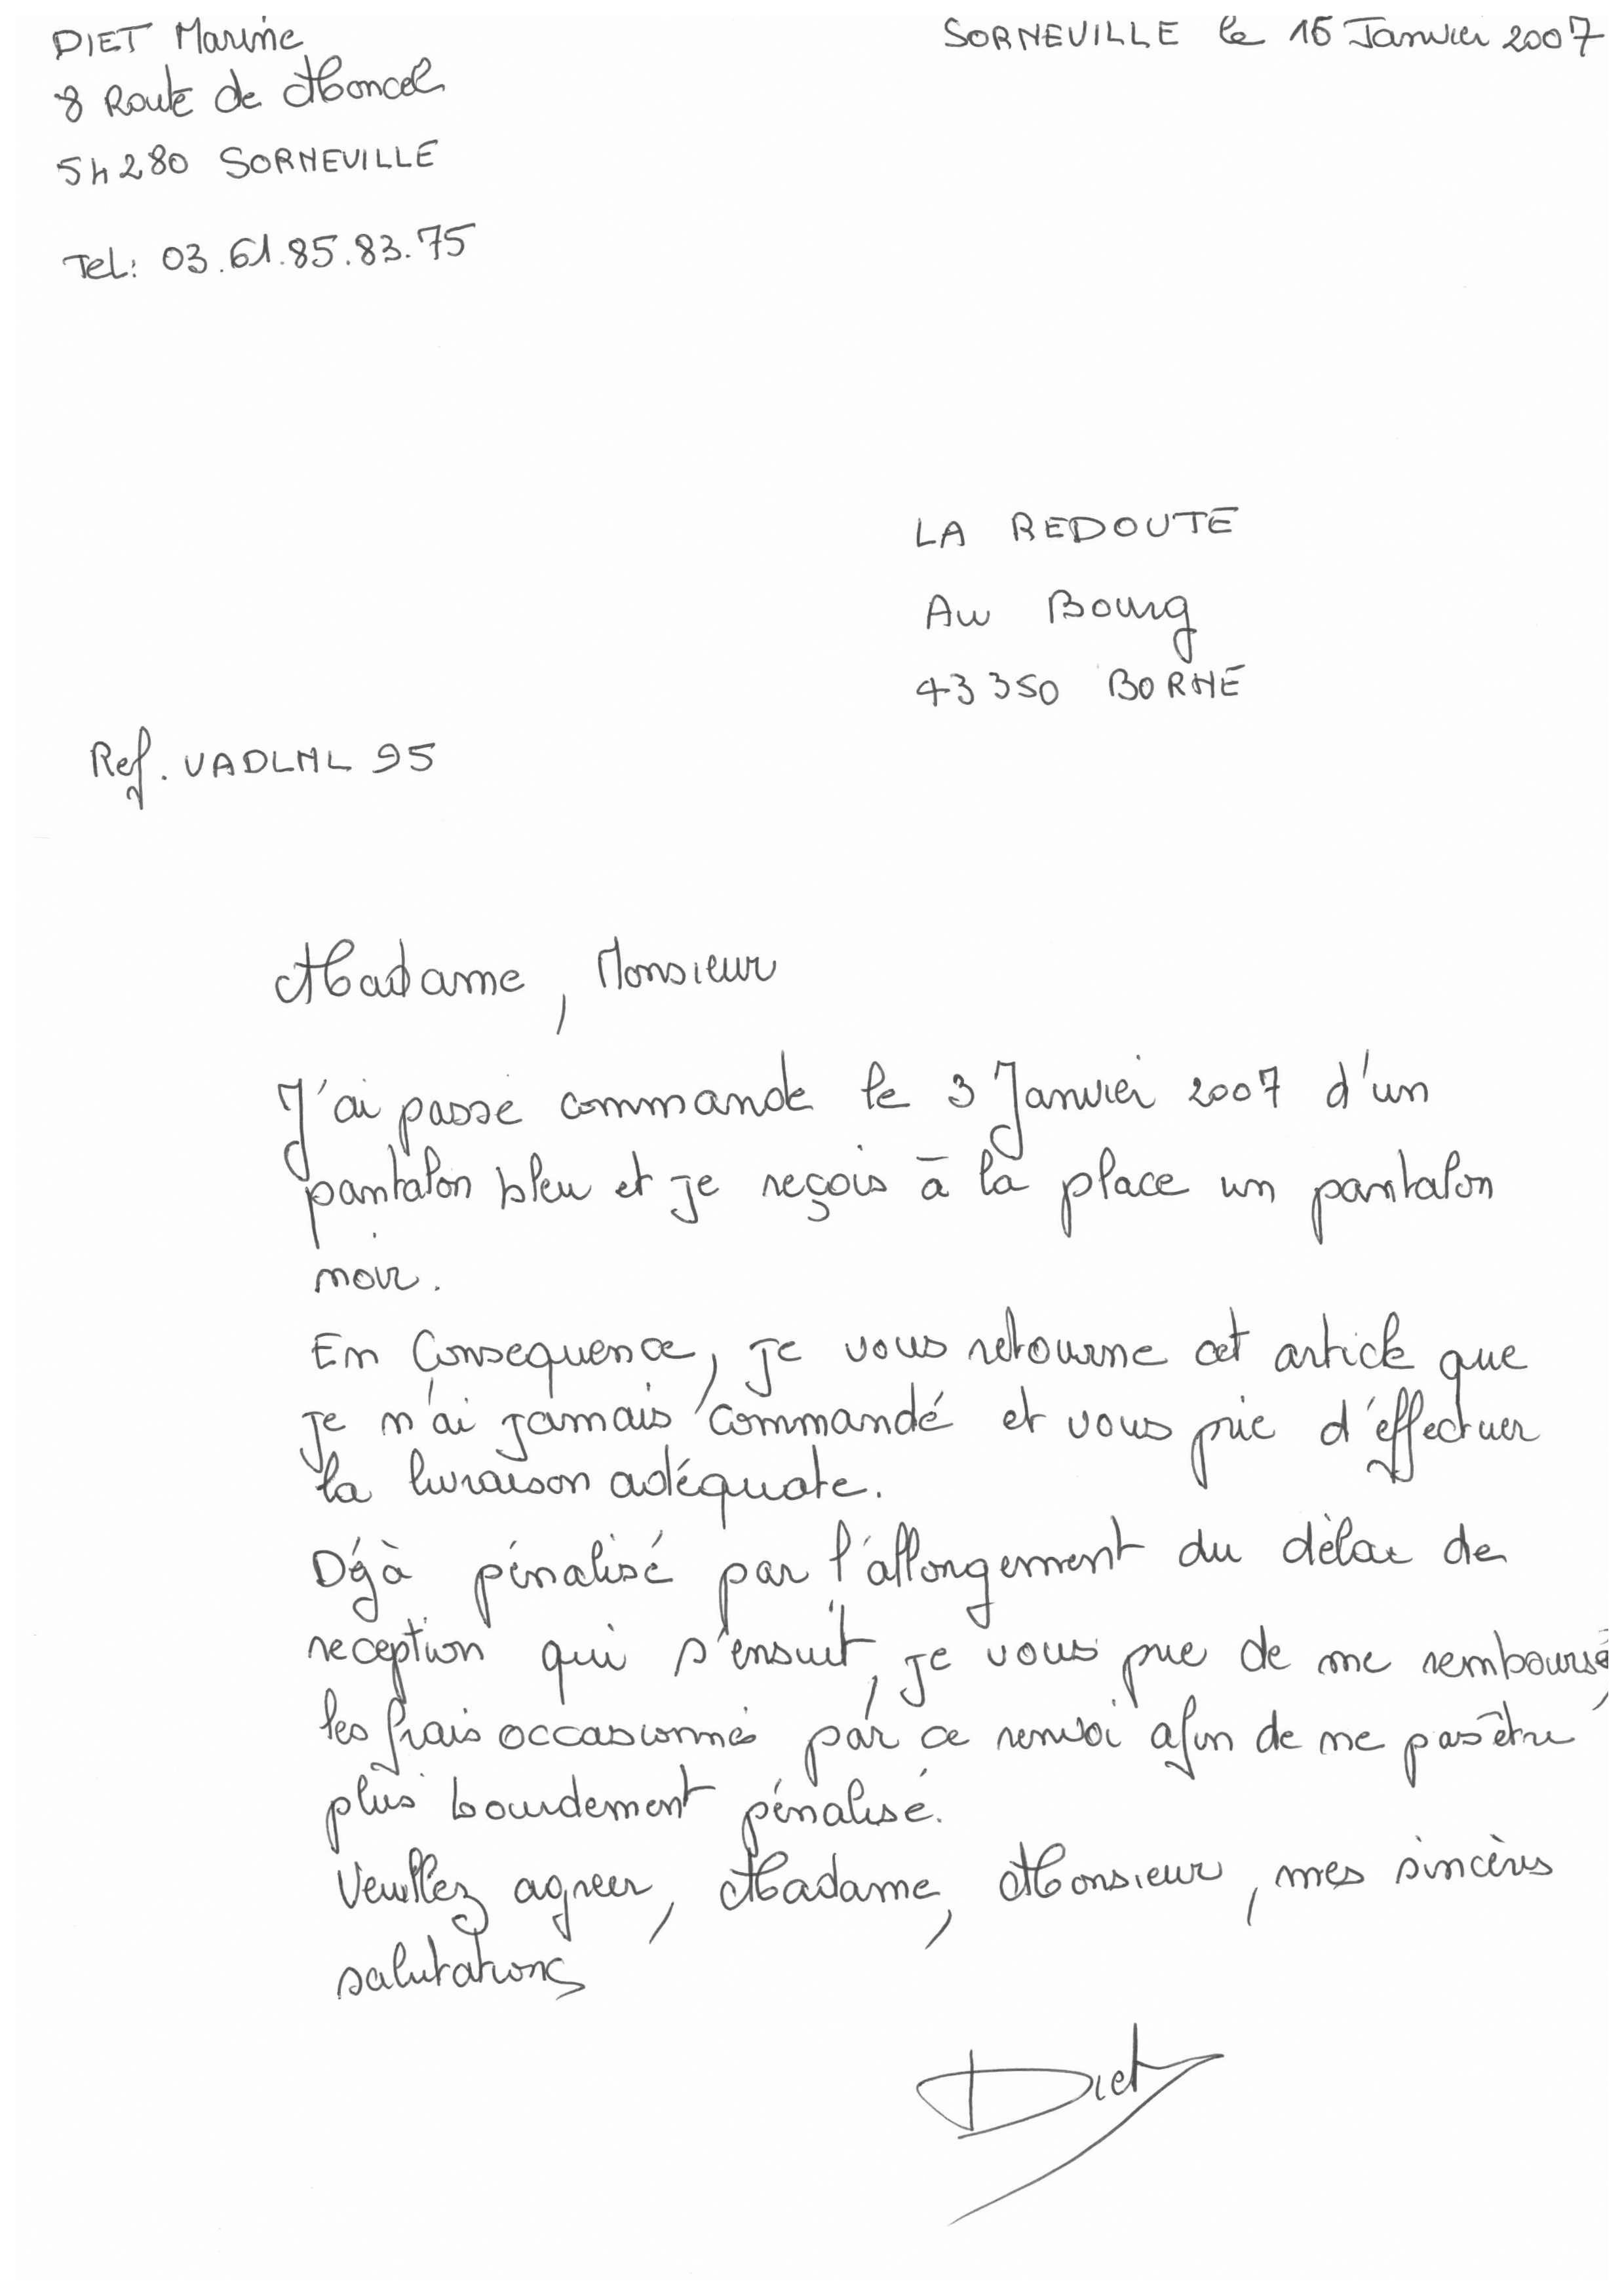 DIET Marine
SORNEVILLE le 15 Janvier 2007
8 Route de Moncel
54280 SORNEVILLE
Tel: 03.61.85.83.75
LA REDOUTE
Au Bourg
43350 BORNE
Ref. VADLML 95
Madame, Monsieur
J'ai passé commande le 3 Janvier 2007 d'un
pantalon bleu et je reçois à la place un pantalon
noir.
En Consequence, je vous retourne cet article que
je n'ai jamais commandé et vous prie d'effectuer
la livraison adéquate.
Déjà pénalisé par l'allongement du délai de
reception qui s'ensuit, je vous prie de me remboursé
les frais occasionnés par ce renvoi afin de ne pas être
plus lourdement pénalisé.
Veuillez agreer, Madame, Monsieur, mes sincères
salutations
Diet